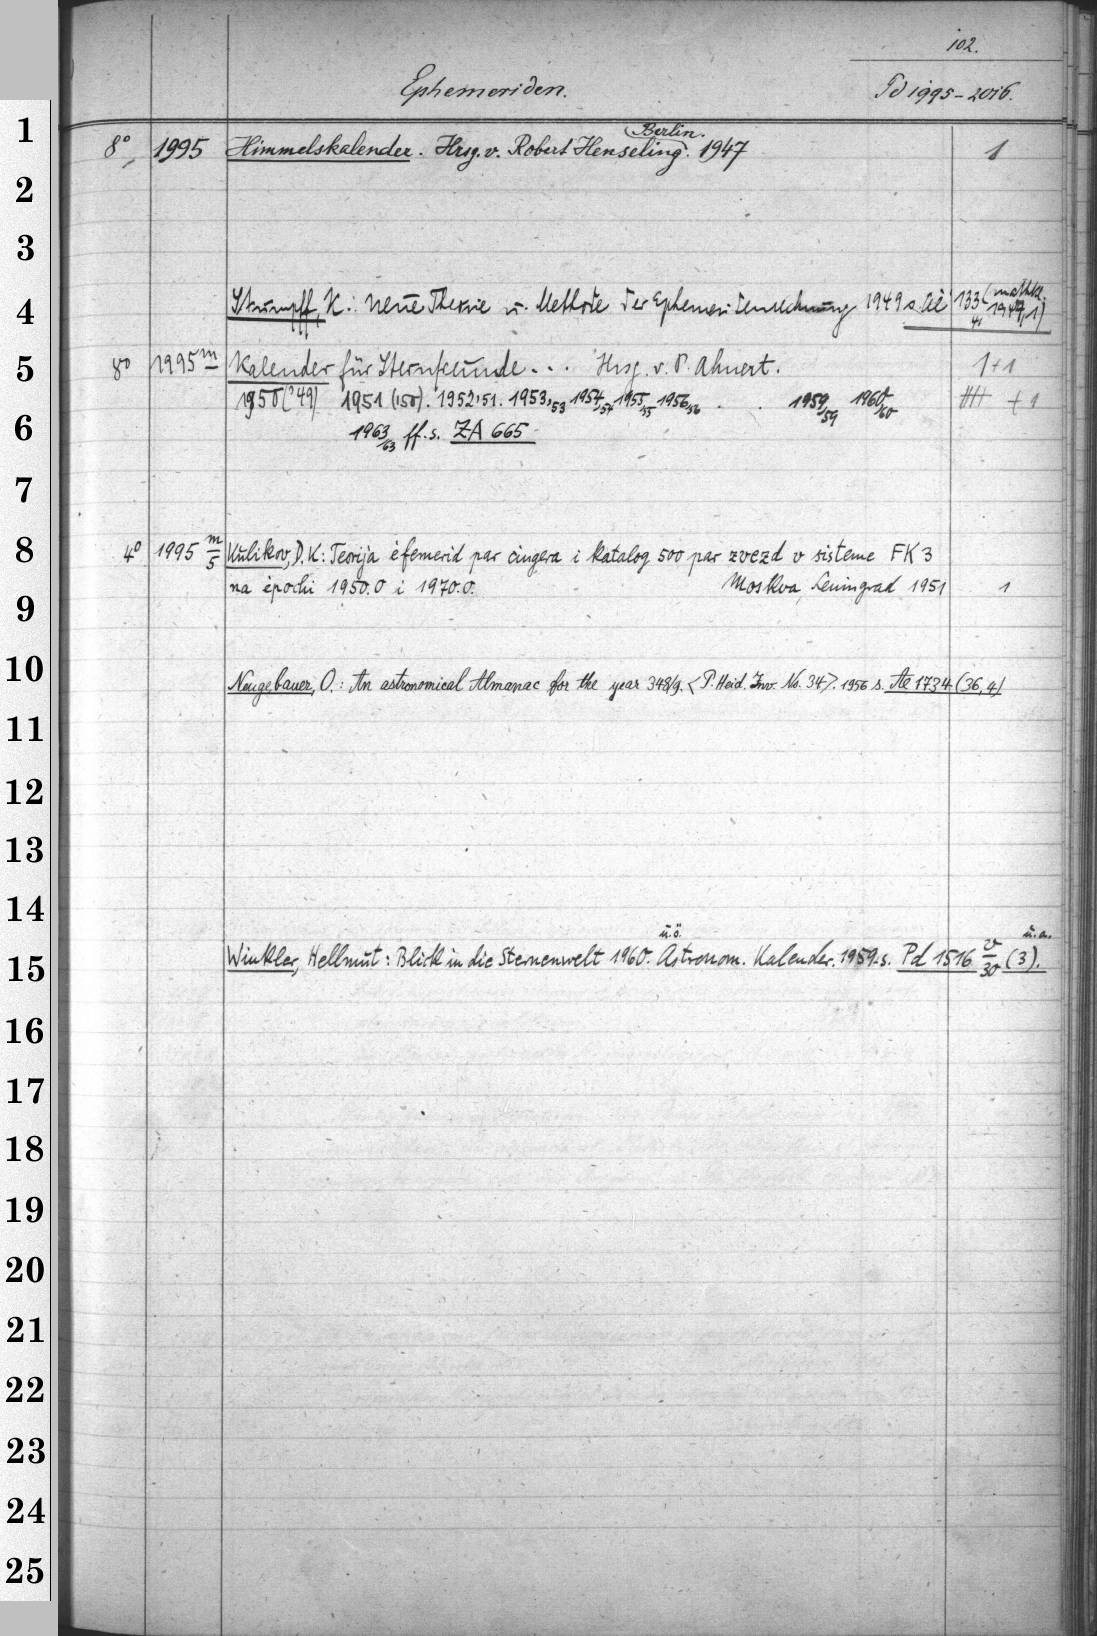 102.
Ephemeriden.
Pd 1995-2016.
Berlin.
8° 1995 Himmelskalender. Hrsg. v. Robert Henseling. 1947 1
Stumpff, K.: Neue Theorie u. Methode der Ephemeridenrechnung 1949 s. Ae 133 (mathkl. 1947,1)
4°
8° 1995 m Kalender für Sternfreunde... Hrsg. v. P. Ahnert. 1+1
1950 ('49) 1951 ('50). 1952,51. 1953,53 1954,54 1955,55 1956,56 . . 1959/59 1960/60 +1
1963/63 ff. s. ZA 665
4° 1995 m/5 Kulikov, D. K.: Teorija ėfemerid par cingera i katalog 500 par zvezd v sisteme FK3
na ėpochi 1950.0 i 1970.0. Moskva, Leningrad 1951 1
Neugebauer, O.: An astronomical Almanac for the year 348/9. <P. Heid. Inv. No. 34>. 1956 s. Ae 1734 (36,4)
ü.ö. u.a.
Winkler, Hellmut: Blick in die Sternenwelt 1960. Astronom. Kalender. 1959. s. Pd 1516 v/30 (3).
1
2
3
4
5
6
7
8
9
10
11
12
13
14
15
16
17
18
19
20
21
22
23
24
25